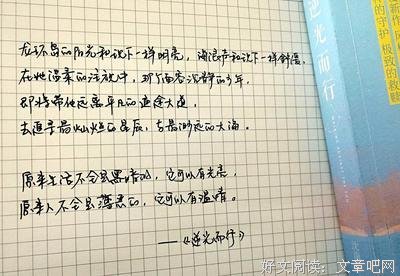 龙环岛的阳光和沈下一样明亮，海浪声和沈下一样舒漫，
在她温柔的注视中，那个面容沉静的少年，
即将带他远离平凡的迷途大道，
去追寻最灿烂的星辰，去最渺远的大海。
原来生活不全是黑暗的，它可以有光亮，
原来人不全是薄恶的，它可以有温情。
——《逆光而行》
逆光而行
的守护 极致的救赎
好文阅读：文章吧网